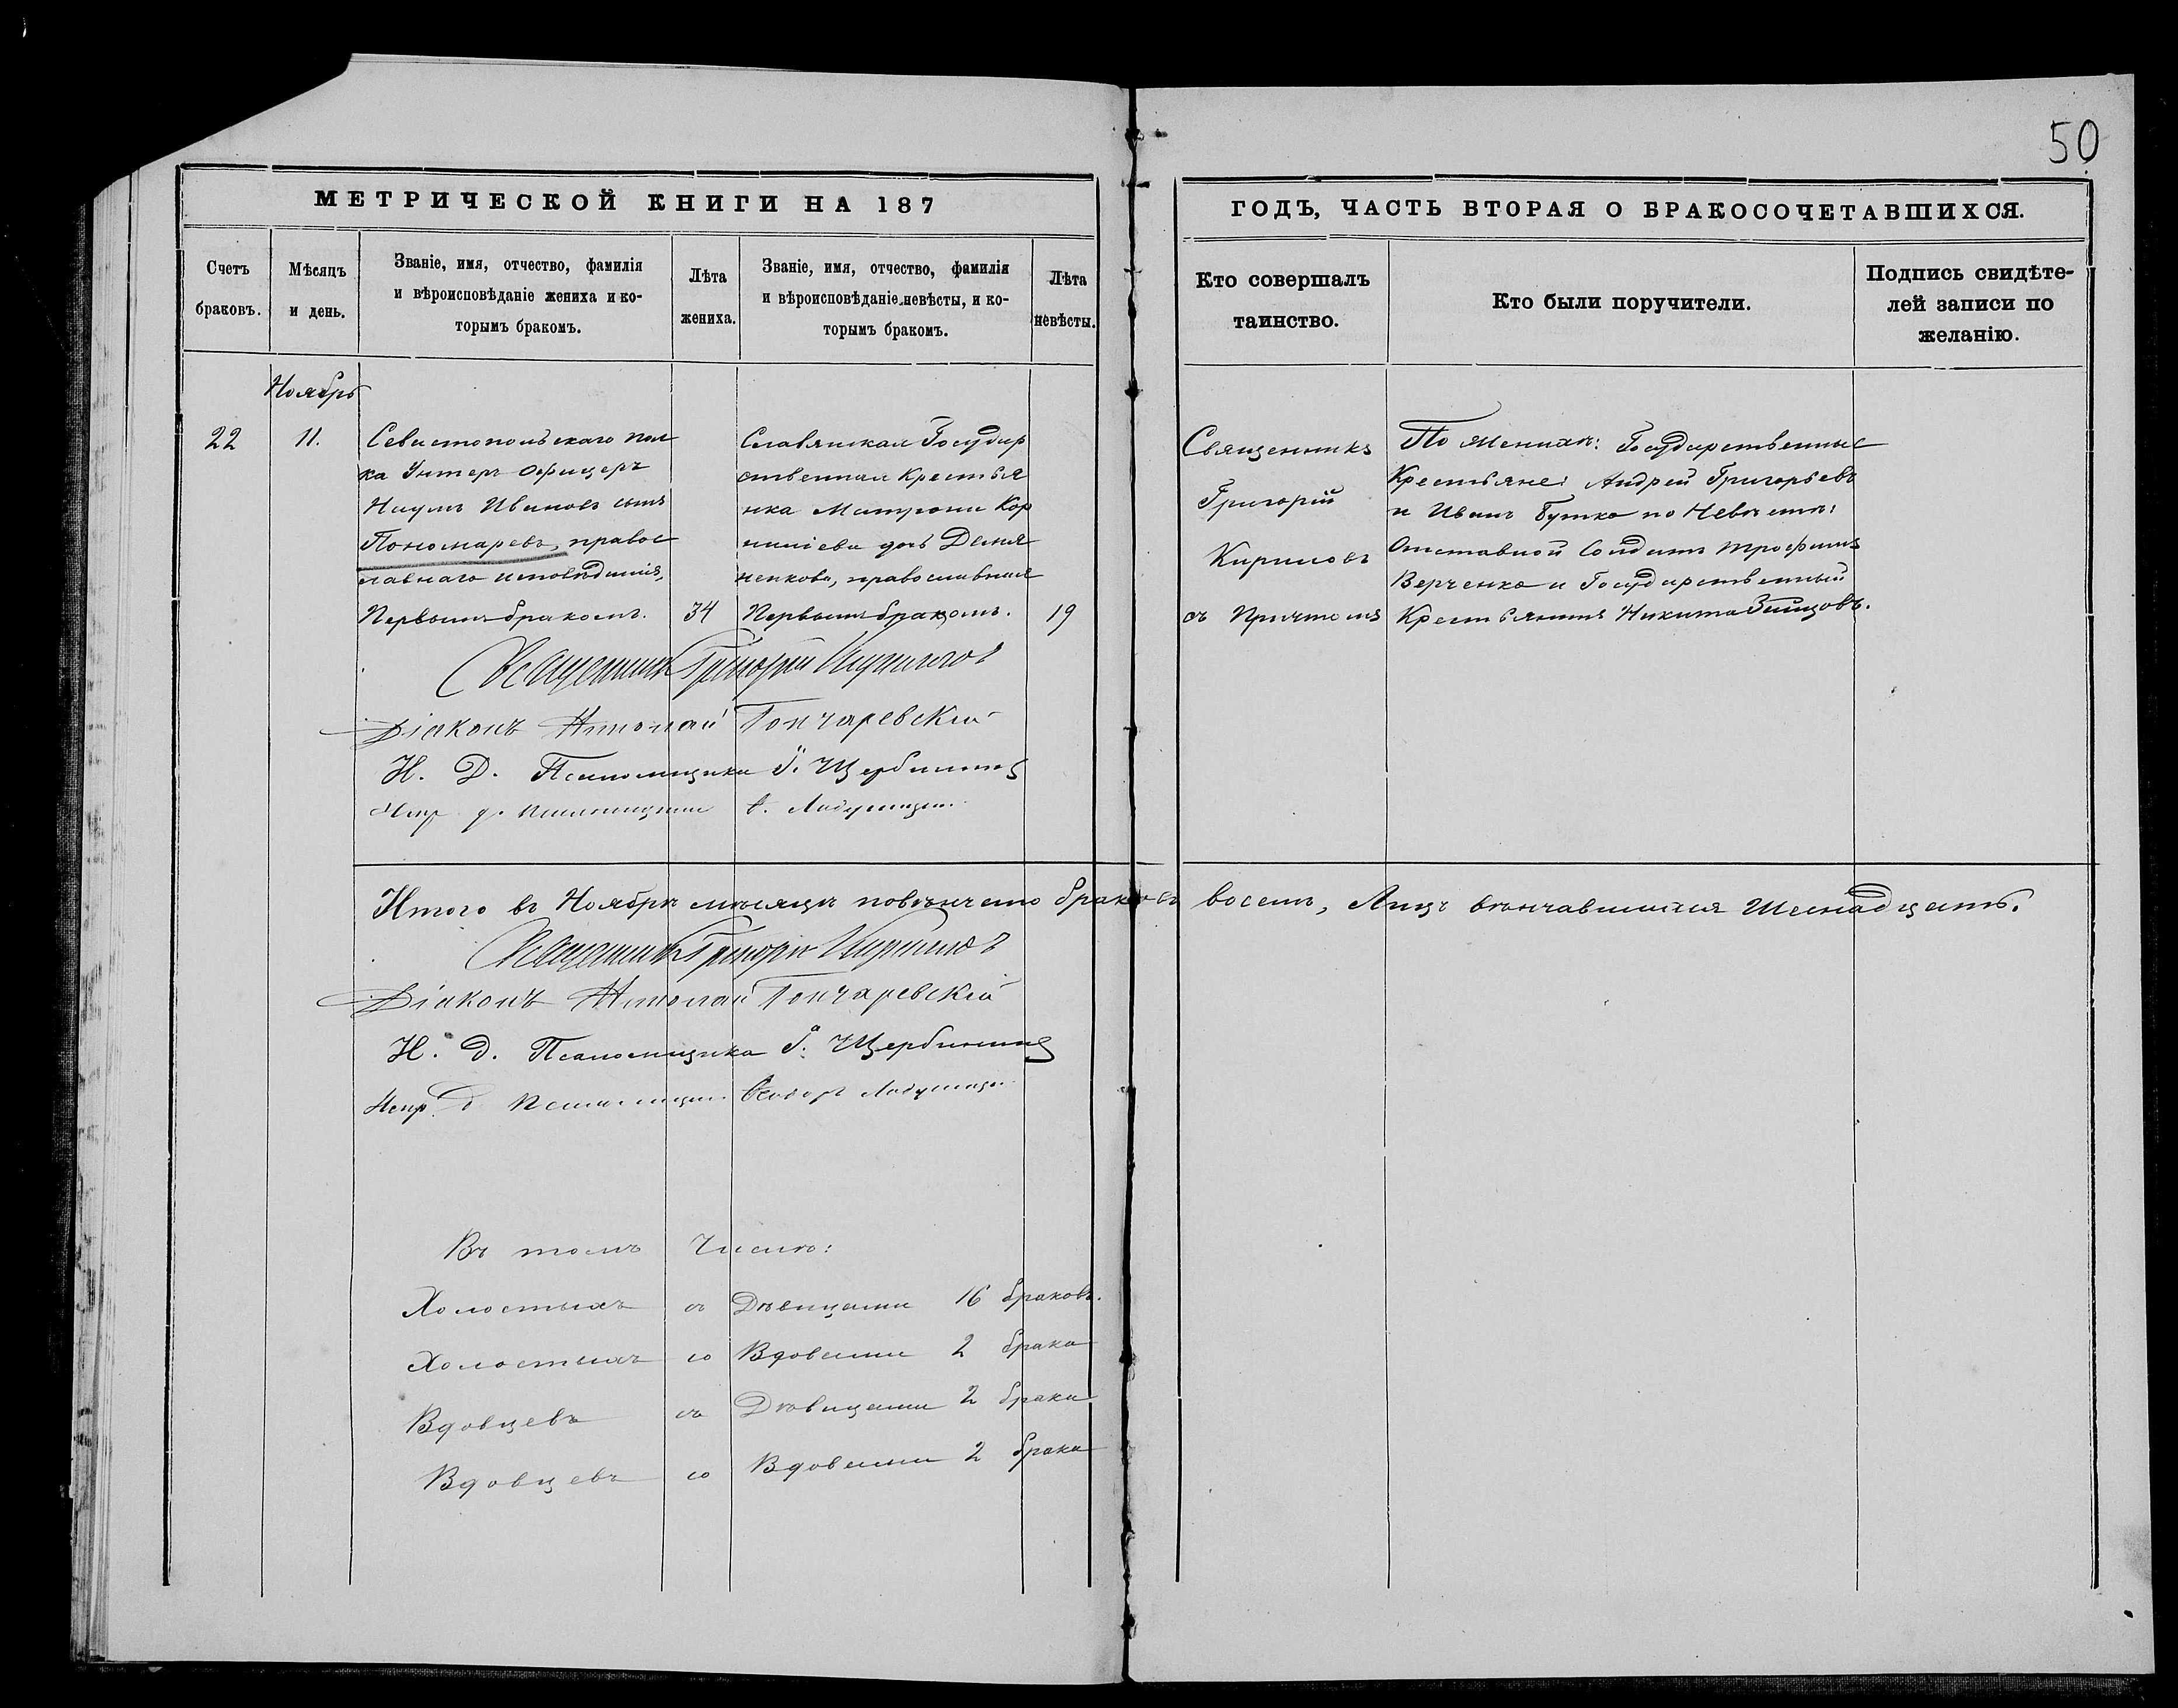 50
МЕТРИЧЕСКОЙ КНИГИ НА 187
ГОДЪ, ЧАСТЬ ВТОРАЯ О БРАКОСОЧЕТАВШИХСЯ.
Счетъ
браковъ.
Мѣсяцъ
и день.
Званіе, имя, отчество, фамилія
и вѣроисповѣданіе жениха и ко-
торымъ бракомъ.
Лѣта
жениха.
Званіе, имя, отчество, фамилія
и вѣроисповѣданіе невѣсты, и ко-
торымъ бракомъ.
Лѣта
невѣсты.
Кто совершалъ
таинство.
Кто были поручители.
Подпись свидѣте-
лей записи по
желанію.
Ноябрь
22
11.
Севастопольскаго пол
ка Унтеръ Офицеръ
Наумъ Ивановъ сынъ
Пономаревъ, правос
лавнаго исповѣданія,
Первымъ бракомъ.
34
Славянская Государ
ственная Крестья
нка Матрона Кор
ниліева дочь Демя
ненкова, православная
Первымъ бракомъ.
19
Священникъ
Григорій
Кириловъ
съ Причтомъ
По Женихѣ: Государственные
Крестьяне: Андрей Григорьевъ
и Иванъ Бутко по Невѣстѣ:
Отставной Солдатъ Трофимъ
Верченко и Государственный
Крестьянинъ Никита Зайцовъ.
Священникъ Григорій Кириловъ
Діаконъ Николай Гончаревскій
И. Д. Псаломщика І. Щербининъ
Испр. д. Псаломщика
Итого въ Ноябрѣ мѣсяцѣ повѣнчено браковъ восемь, Лицъ вѣнчавшихся Шеснадцать.
Священникъ Григорій Кириловъ
Діаконъ Николай Гончаревскій
И. д. Псаломщика І. Щербининъ
Испр. д. Псаломщика Ѳеодоръ
Въ томъ Числѣ:
Холостыхъ съ Дѣвицами 16 браковъ.
Холостыхъ со Вдовами 2 брака
Вдовцевъ съ Дѣвицами 2 брака
Вдовцевъ со Вдовами 2 брака